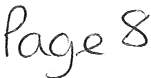 Page 8